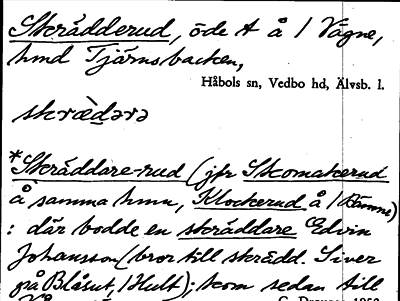 Skrädderud, öde t å 1 Vägne,
hmd Tjärnsbacken,
Håbols sn, Vedbo hd, Älvsb. l.
skrædərə
*Skräddare-rud (jfr Skomakerud
å samma hmn, Klockerud å 1 Rämne)
: där bodde en skräddare Edvin
Johansson (bror till skrädd. Siver
på Blåsut, 1 Hult); kom sedan till